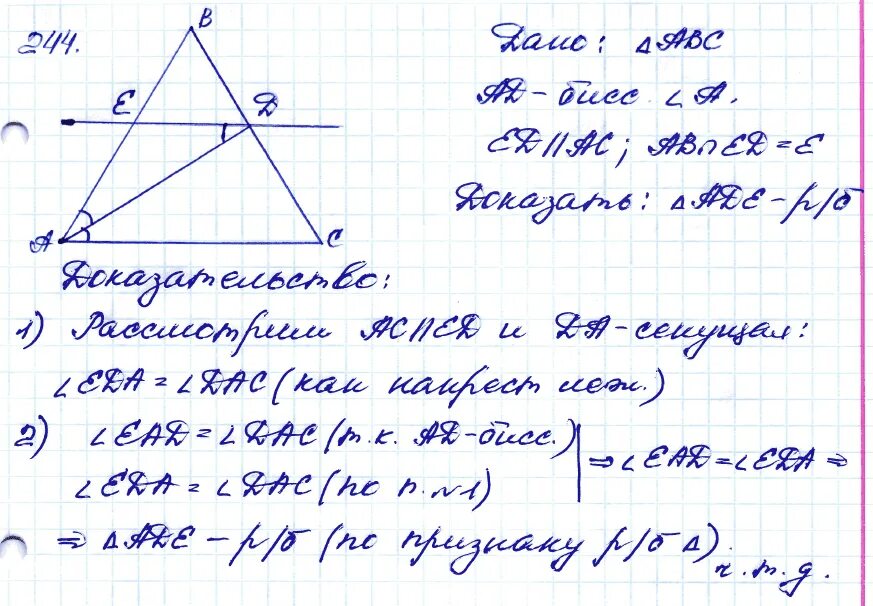 244.
B
E
D
A
C
Дано: △ABC
AD - бисс ∠A.
ED || AC; AB ∩ ED = E
Доказать: △ADE - р/б
Доказательство:
1) Рассмотрим AC || ED и DA - секущая:
∠EDA = ∠DAC (как накрест леж.)
2) ∠EAD = ∠DAC (т.к. AD - бисс.)
∠EDA = ∠DAC (по п. №1)
⇒ ∠EAD = ∠EDA ⇒
⇒ △ADE - р/б (по признаку р/б △).
ч.т.д.